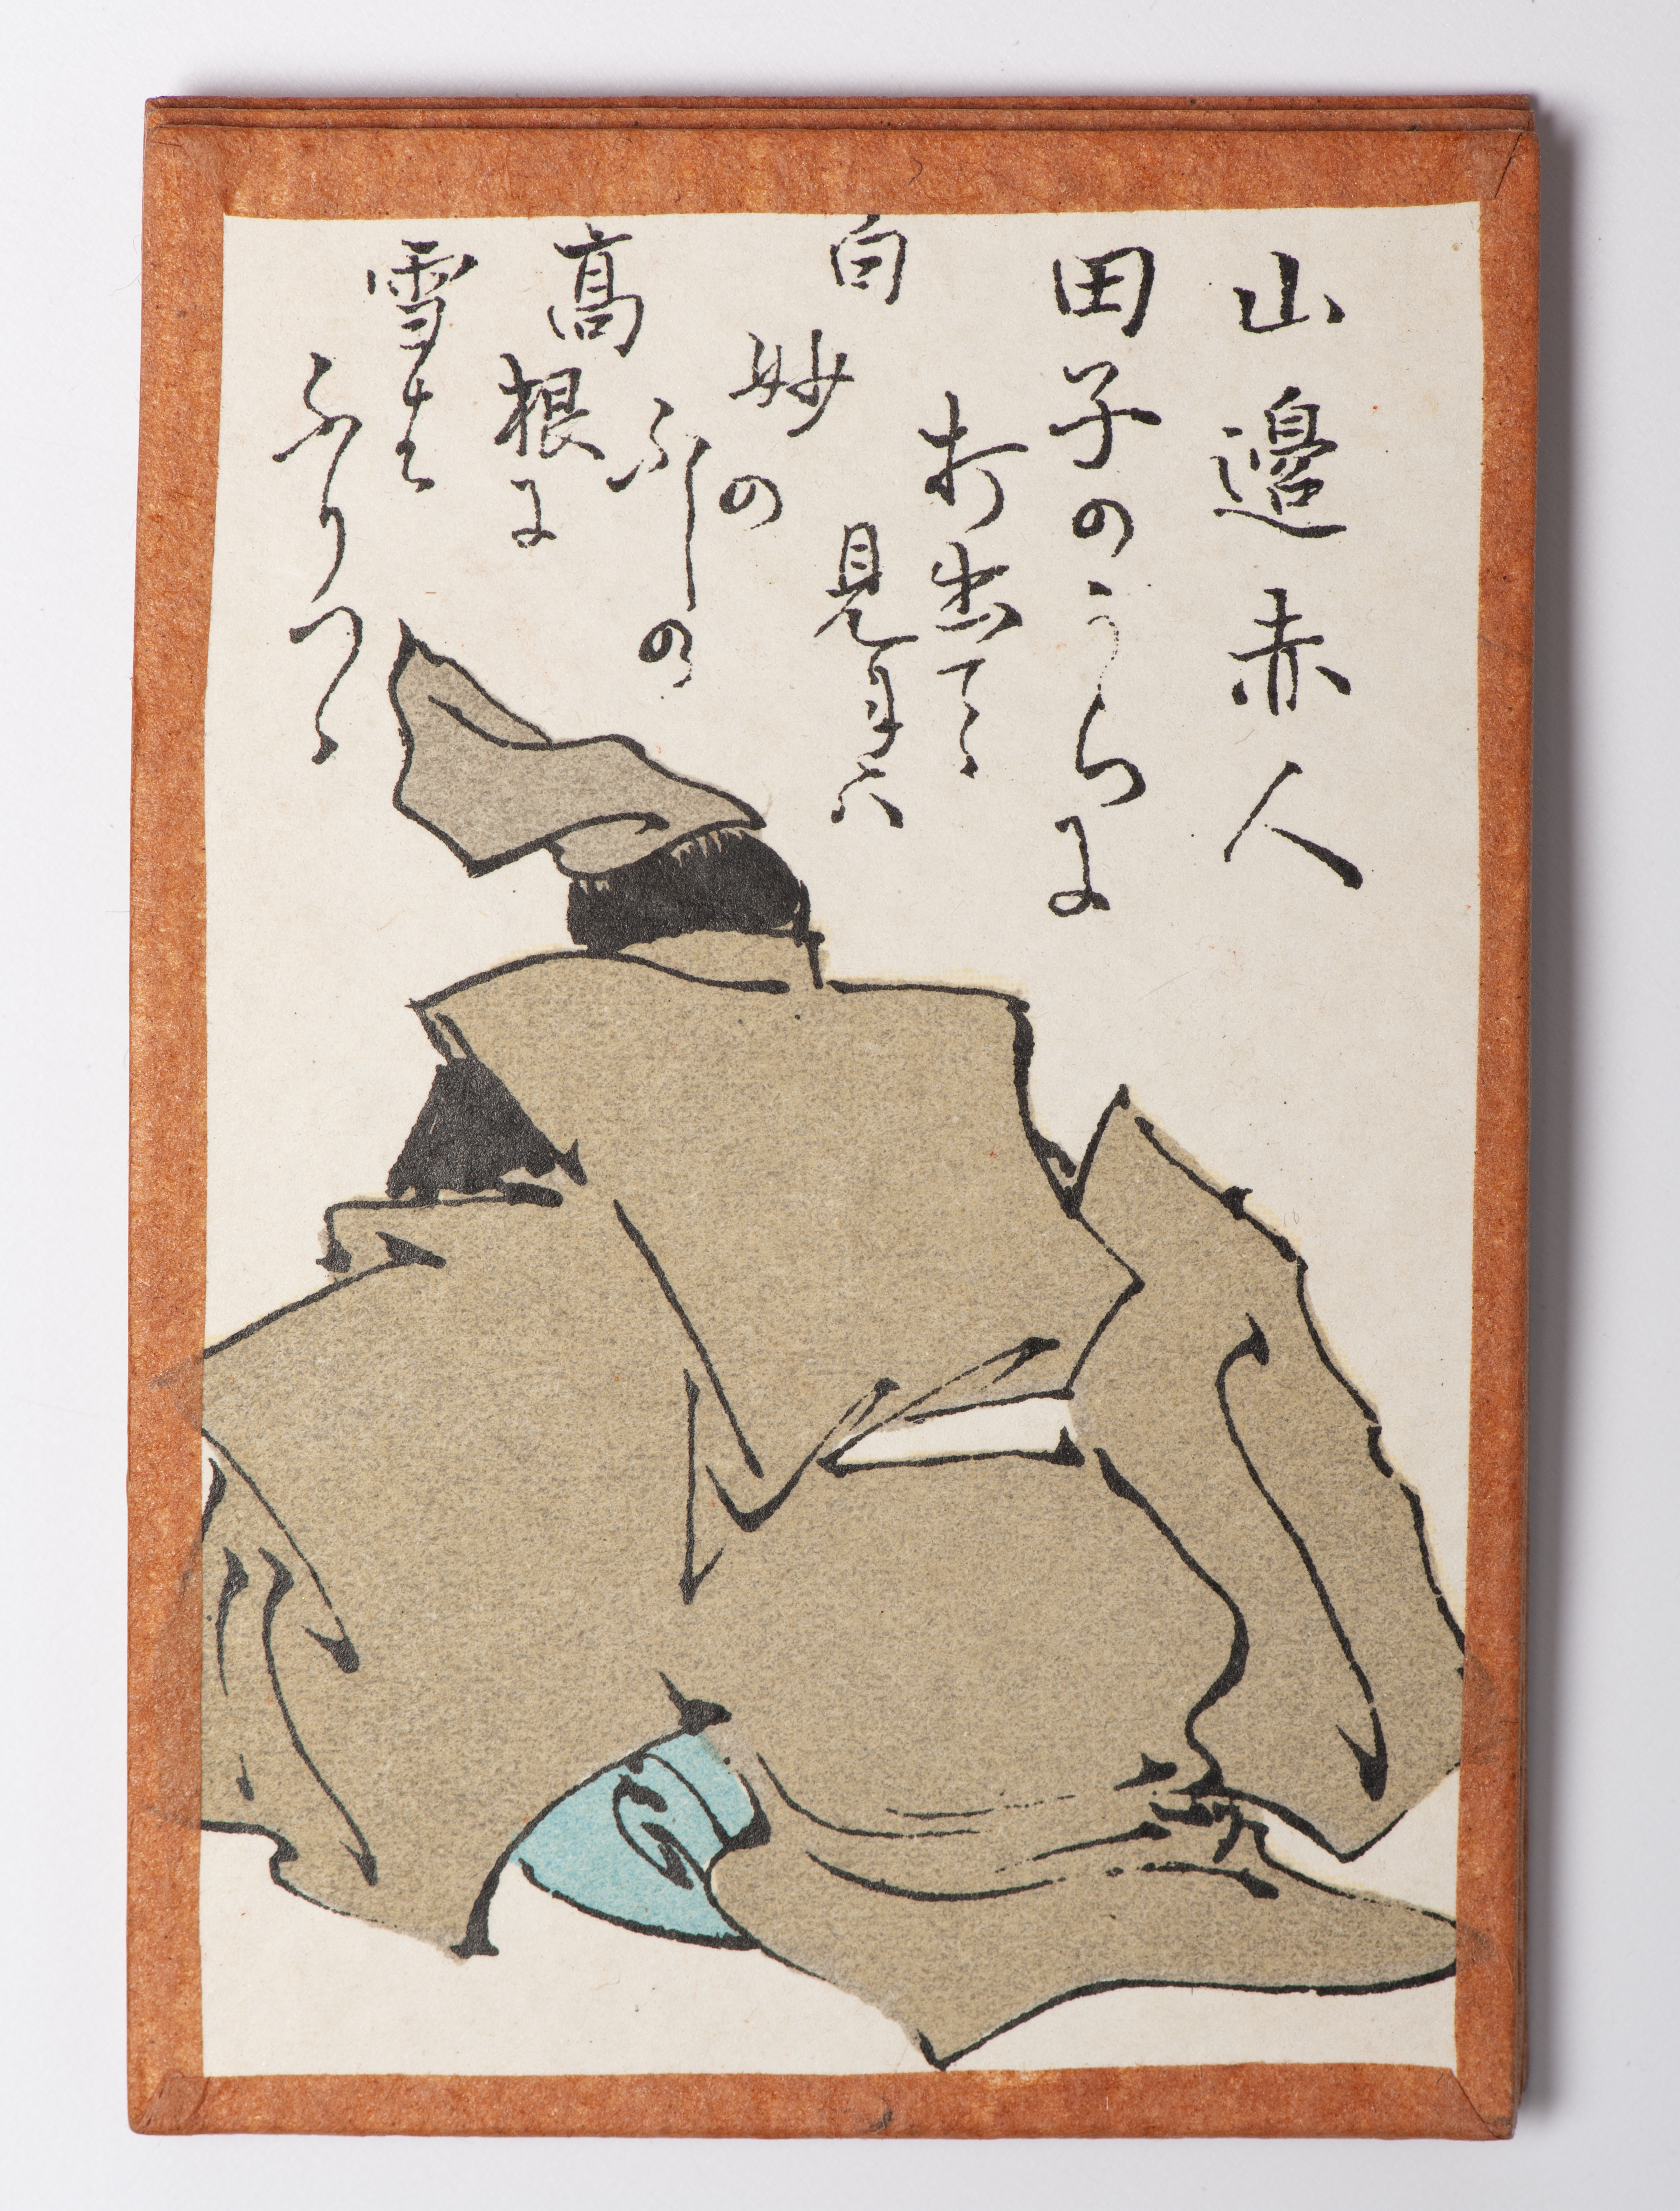 山邉赤人
田子のうらに
打出てゝ
見れハ
白妙の
ふしの
高根に
雪は
ふりつゝ